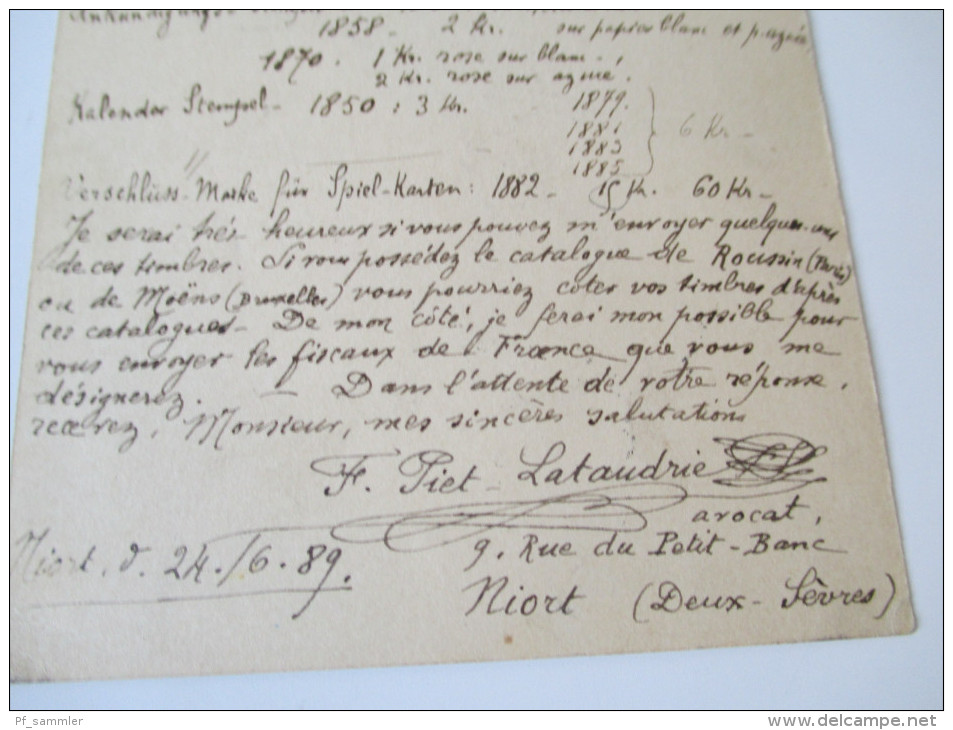 1858 - 2 Kr. sur papier blanc et p. azuré,
1870. 1 Kr. rose sur blanc.,
2 Kr. rose sur azuré.
Kalender Stempel - 1850 : 3 Kr.
1879.
1881
1883
1885
6 Kr. -
Verschluss-Marke für Spiel-Karten: 1882 - 15 Kr. 60 Kr. -
Je serai très heureux si vous pouvez m'envoyer quelques-uns
de ces timbres. Si vous possédez le catalogue de Roussin (Paris)
ou de Moëns (Bruxelles) vous pourriez côter vos timbres d'après
ces catalogues - De mon côté, je ferai mon possible pour
vous envoyer les fiscaux de France que vous me
désignerez. - Dans l'attente de votre réponse,
recevez, Monsieur, mes sincères salutations
F. Piet-Lataudrie
avocat,
9. Rue du Petit-Banc
Niort (Deux-Sèvres)
Niort, d. 24./6.89.
Pf_sammler
www.delcampe.net